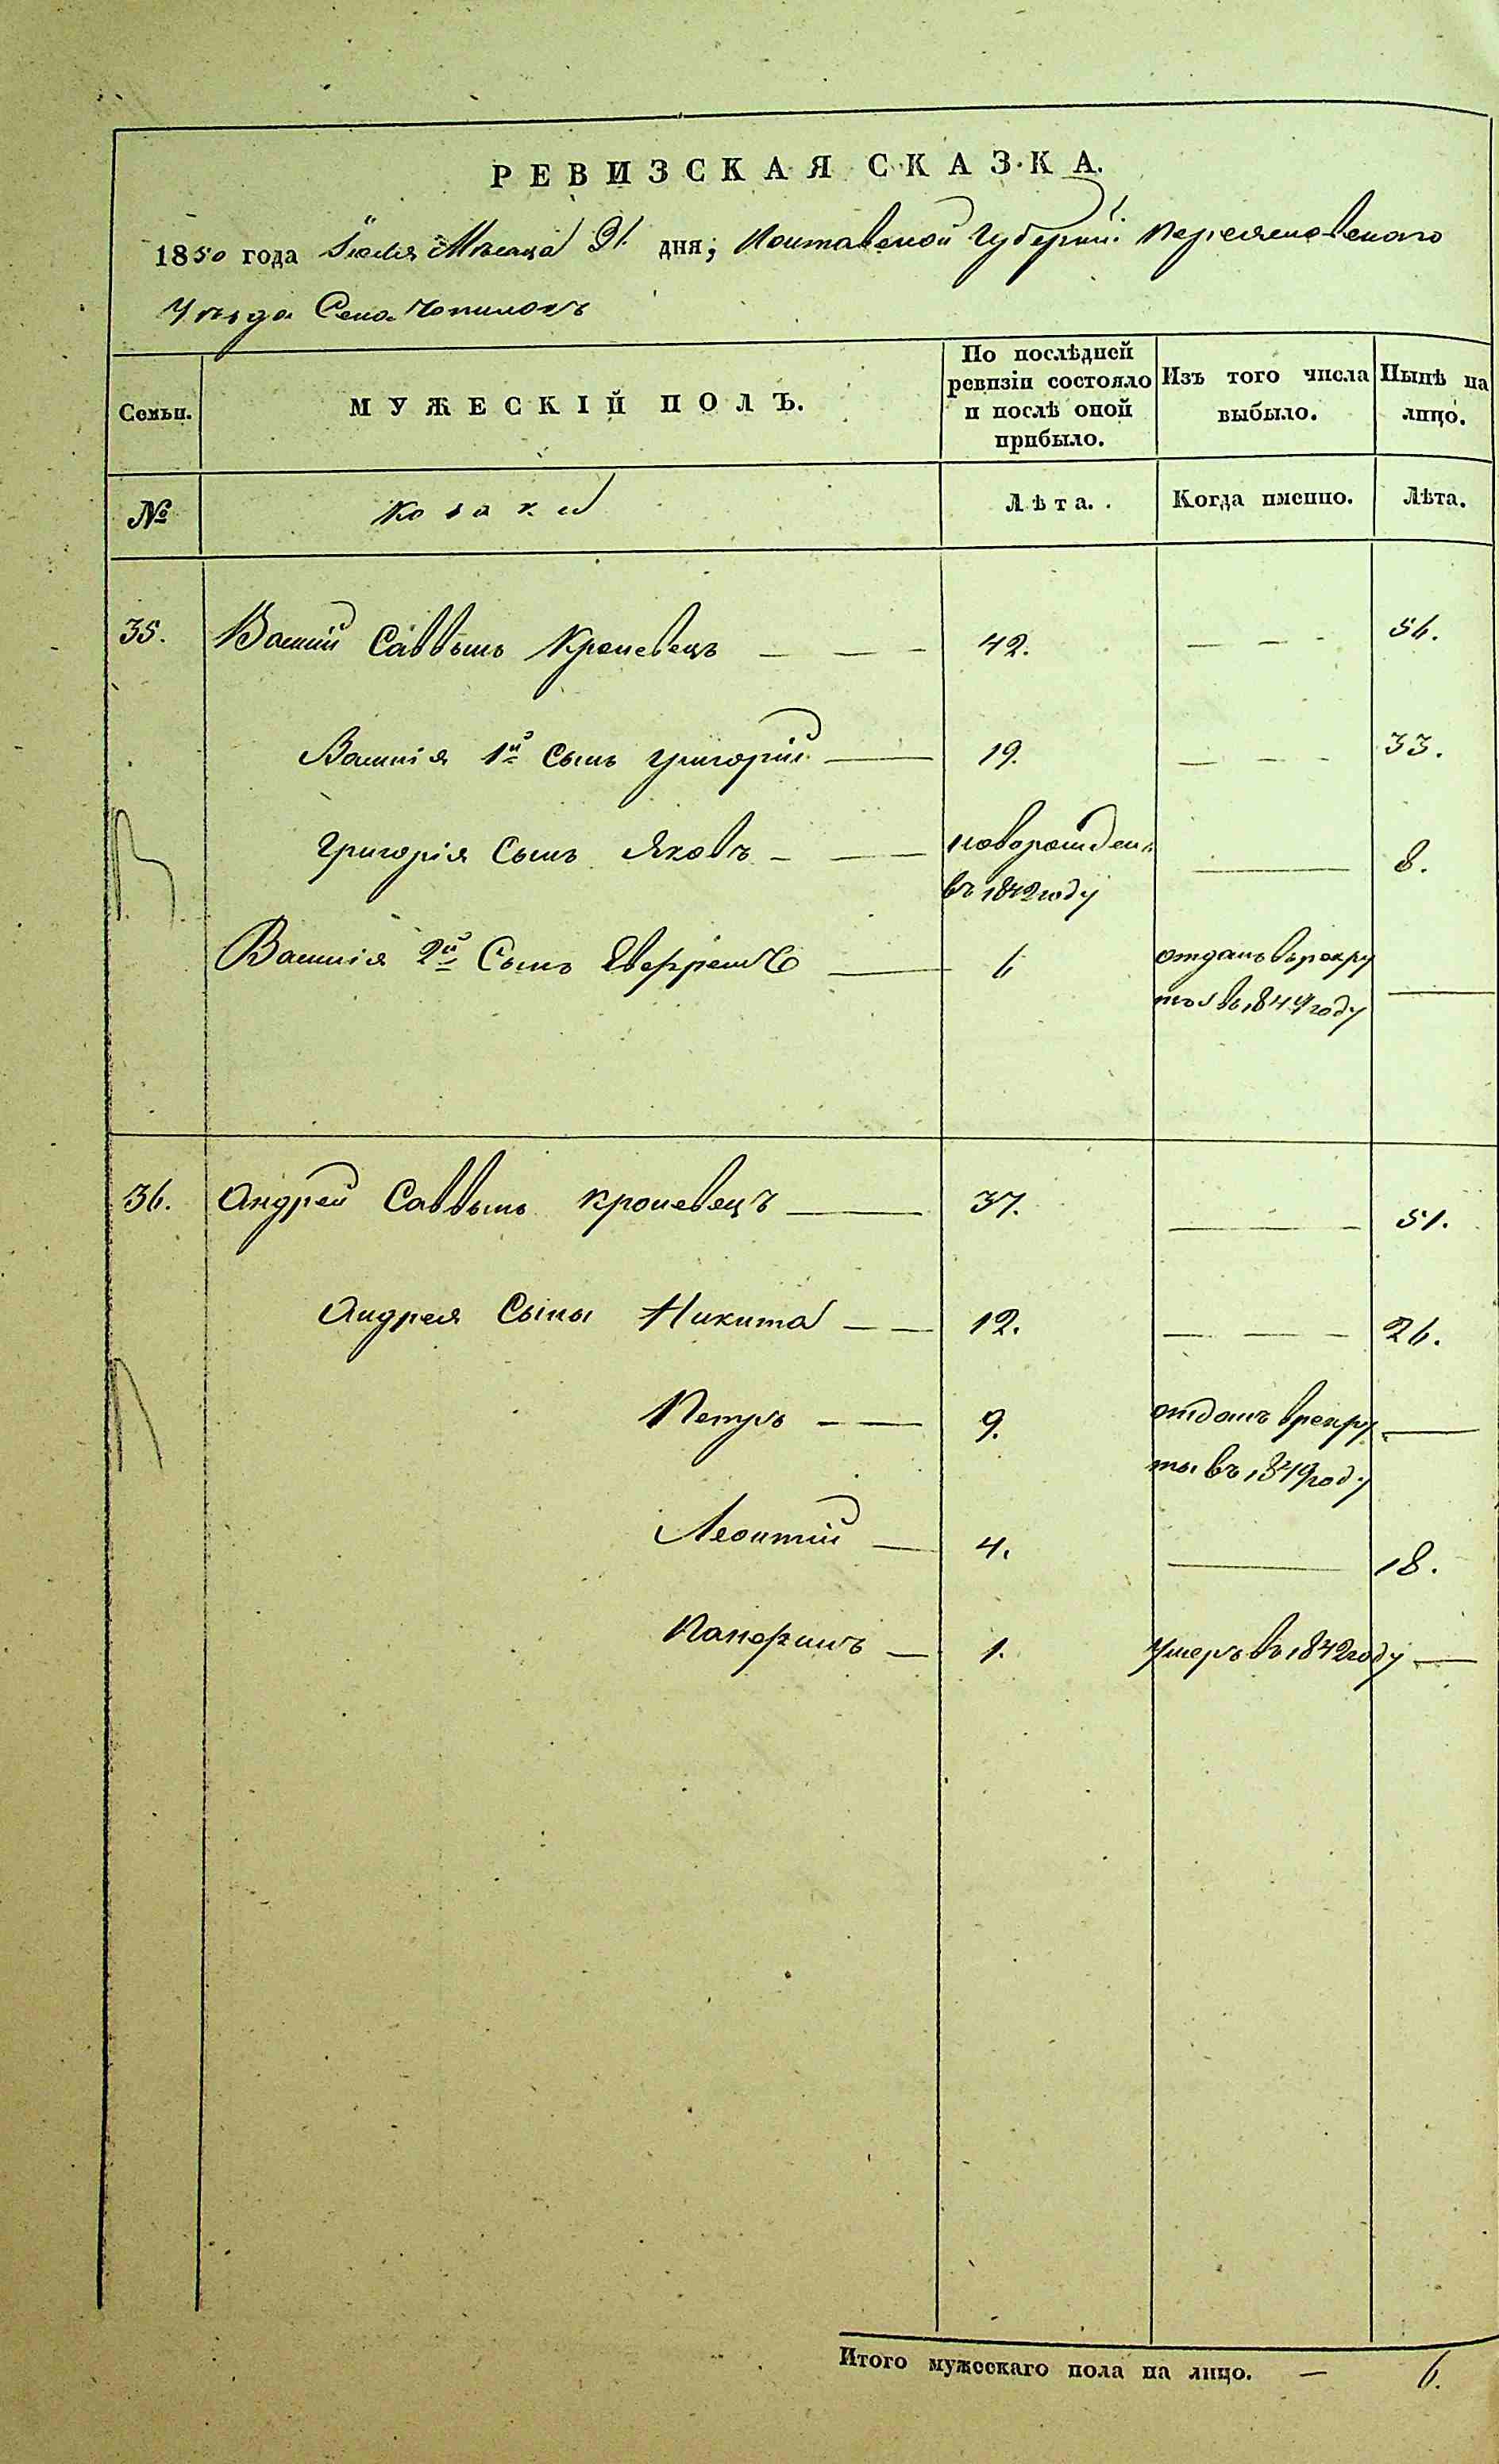 РЕВИЗСКАЯ СКАЗКА.
1850 года Іюля Месяца 31. дня; Полтавской Губерніи Переяславского
Уезда Села Чопилокъ
Семьи.
МУЖЕСКІЙ ПОЛЪ.
По послѣдней ревизіи состояло и послѣ оной прибыло.
Изъ того числа выбыло.
Нынѣ на лицо.
№
Козаки
Лѣта.
Когда именно.
Лѣта.
35. Василій Саввинъ Кропевецъ — — — 42. — — — 56.
Василія 1й Сынъ Григорій — 19. — — — 33.
Григорія Сынъ Яковъ — — новорожден — 8.
въ 1842 году
Василія 2й Сынъ — 6 отданъ в рекру
ты въ 1844 году —
36. Андрей Саввинъ Кропевецъ — 37. — 51.
Андрея Сыны Никита — — 12. — — — 26.
Петръ — — 9. отданъ в рекру —
ты въ 1849 году
Леонтій — 4. — 18.
— 1. умеръ въ 1842 году —
Итого мужескаго пола на лицо. — 6.